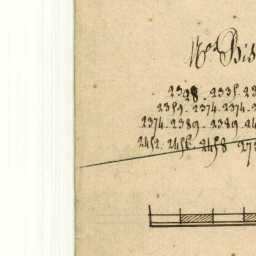 Nro Bis
2328. 2335. 2
2359. 2374. 2374. 2
2374. 2389. 2389. 24
2452. 2456. 2458 27